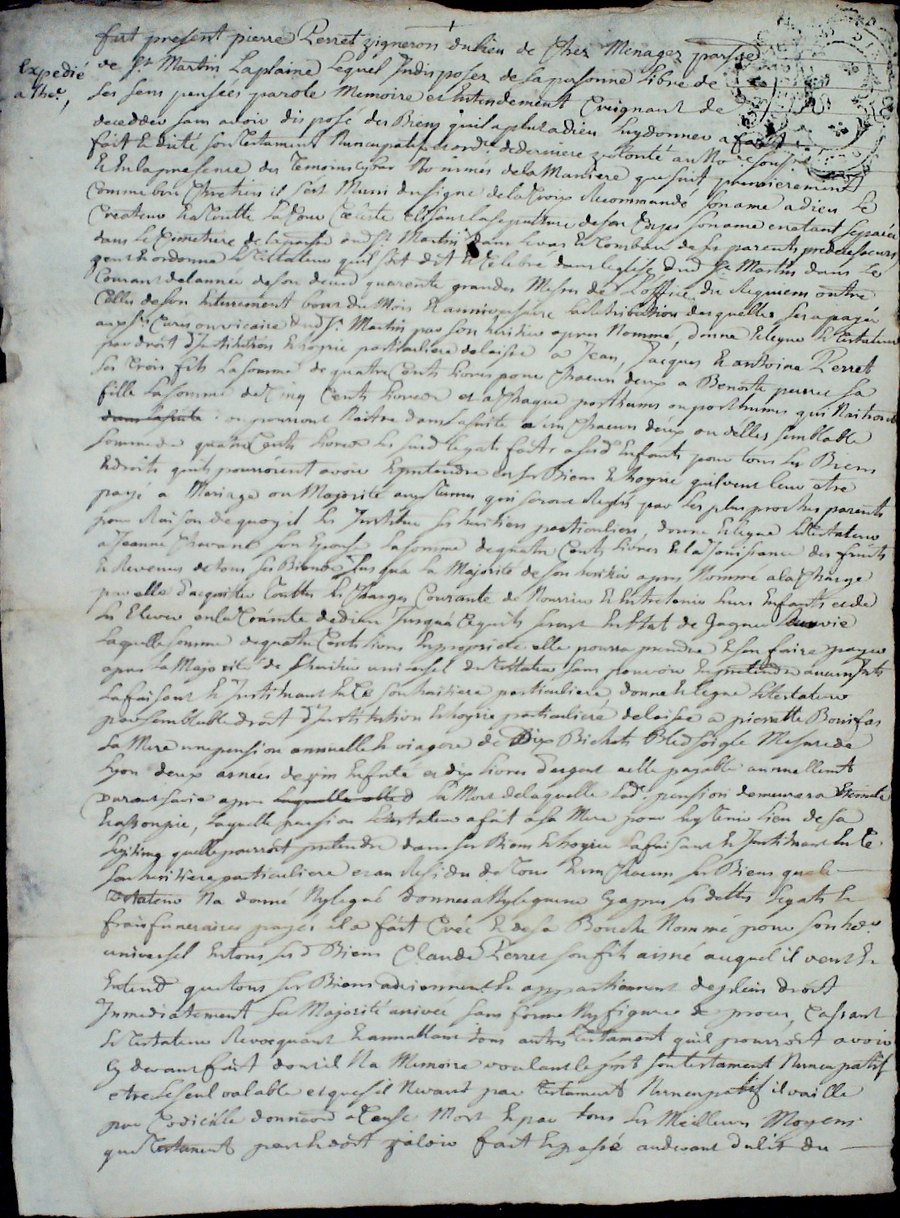 fut présent pierre Perret vigneron du lieu de Chez Menager parroisse
Expedié
a lhe.
de St Martin Laplaine Lequel Indisposez de sa personne Libre de
ses sens pensées parole Memoire et Entendement Craignant de
decedder sans avoir disposé des Biens quil a plut a dieu luy donner a
fait et dicté son testament Nuncupatif et ordce de derniere volonté au No. soussé
Et En la presence des Temoins cybas Nommés de la Maniere que suit premierement
Comme bon Chretien il s'est Muni du signe de la Croix Recommandé son ame a dieu Le
Createur Et a Toutte La Cour Celeste Elisant la sepulture de son Corps son ame en etant separée
dans Le Cimetiere de la parroisse dud St Martin dans le vas Et Tombeau de ses parents predecesseurs
veut Et ordonne Le Testateur quil soit dit Et Celebré dans leglise dud St Martin dans Le
Courant de lannée de son deced quarente grandes Messes de L'office de Requiem outre
Celles de son Enterrement bout du Mois Et anniversaire La Retribution desquelles sera payée
aux srs Curé ou vicaire dud St Martin par son heritier apres Nommé, donne Et Legue Le Testateur
par droit d'Institution Et hoyrie particuliere delaissée a Jean, Jacques Et anthoine Perret
ses Trois fils La somme de quatre Cents livres pour Chacun deux a Benoite perret sa
fille La somme de Cinq Cents livres et a Chaque posthume ou posthumes qui Naitront
dans la suite ou pourront Naitre dans la suite a un Chacun deux ou delles semblable
somme de quatre Cents livres Les susd Legats faits a sesd Enfants pour tous Les Biens
Et droits quils pourroient avoir Et pretendre en ses Biens Et hoyrie quil veut leur etre
payé a Mariage ou Majorité aux Termes qui seront Reglés par Les plus proches parents
pour Raison de quoy il Les Institue ses heritiers particuliers, donne Et legue Le Testateur
a Jeanne son Epouse La somme de quatre Cents livres Et la Jouissance des fruits
Et Revenus de tous ses Biens Jusqua La Majorité de son heritier apres Nommé a la Charge
par elle d'acquitter Touttes Les Charges Courante de Nourrir Et Entretenir leurs Enfants et de
Les Elever en la Crainte de dieu Jusqua Ce quils seront En Etat de gagner leur vie
Laquelle somme de quatre Cents livres En propriete elle pourra prendre Et s'en faire payer
apres La Majorité de L'heritier universel du Testateur sans pouvoir En pretendre aucun Interets
La faisant Et Instituant En Ce son heritiere particuliere donne Et legue Le Testateur
par semblable droit d'Institution Et hoyrie particuliere delaissée a pierrette Bonifas
sa Mere une pension annuelle Et viagere de Dix Bichets Bled soigle Mesure de
Lyon deux asnées de vin Et dix livres d'argent a elle payable annuellement
Durant sa vie apres laquelle elle La Mort de laquelle lad. pension demeurera Eteinte
Et assoupie, Laquelle pension Le Testateur a fait a sa Mere pour luy Tenir Lieu de sa
Legitime quelle pourroit pretendre dans ses Biens Et hoyrie La faisant Et Instituant En Ce
son heritiere particuliere et au Residu de Tous Et un Chacun ses Biens que le
Testateur Na donné Ny legué donnera Ny leguera Cy apres ses dettes Legats Et
frais funeraires payés il a fait Créé Et de sa Bouche Nommé pour son her.
universel En tous sesd Biens Claude Perret son fils aisné auquel il veut Et
Entend que tous ses Biens adviennent Et appartiennent de plein droit
Immediatement Sa Majorité arrivée sans forme Ny figure de procés, Cassant
Le Testateur Revocquant Et annullant tous autres Testament quil pourroit avoir
Cy devant fait dont il Na Memoire voulant Le present son testament Nuncupatif
etre Le seul valable et que sil Ne vaut par testament Nuncupatif il vaille
par Codicille donnaon a Cause Mort Et par tous Les Meilleurs Moyens
que testament peut Et doit valoir fait Et passé audevant du lit du